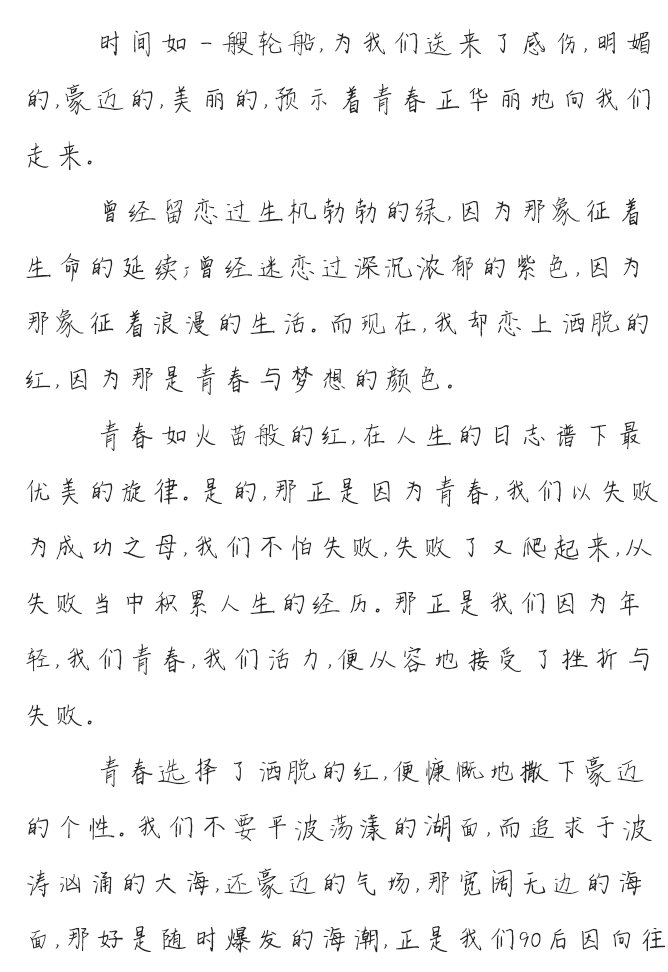 时间如一艘轮船,为我们送来了感伤,明媚
的,豪迈的,美丽的,预示着青春正华丽地向我们
走来。
曾经留恋过生机勃勃的绿,因为那象征着
生命的延续;曾经迷恋过深沉浓郁的紫色,因为
那象征着浪漫的生活。而现在,我却恋上洒脱的
红,因为那是青春与梦想的颜色。
青春如火苗般的红,在人生的日志谱下最
优美的旋律。是的,那正是因为青春,我们以失败
为成功之母,我们不怕失败,失败了又爬起来,从
失败当中积累人生的经历。那正是我们因为年
轻,我们青春,我们活力,便从容地接受了挫折与
失败。
青春选择了洒脱的红,便慷慨地撒下豪迈
的个性。我们不要平波荡漾的湖面,而追求于波
涛汹涌的大海,还豪迈的气场,那宽阔无边的海
面,那好是随时爆发的海潮,正是我们90后因向往